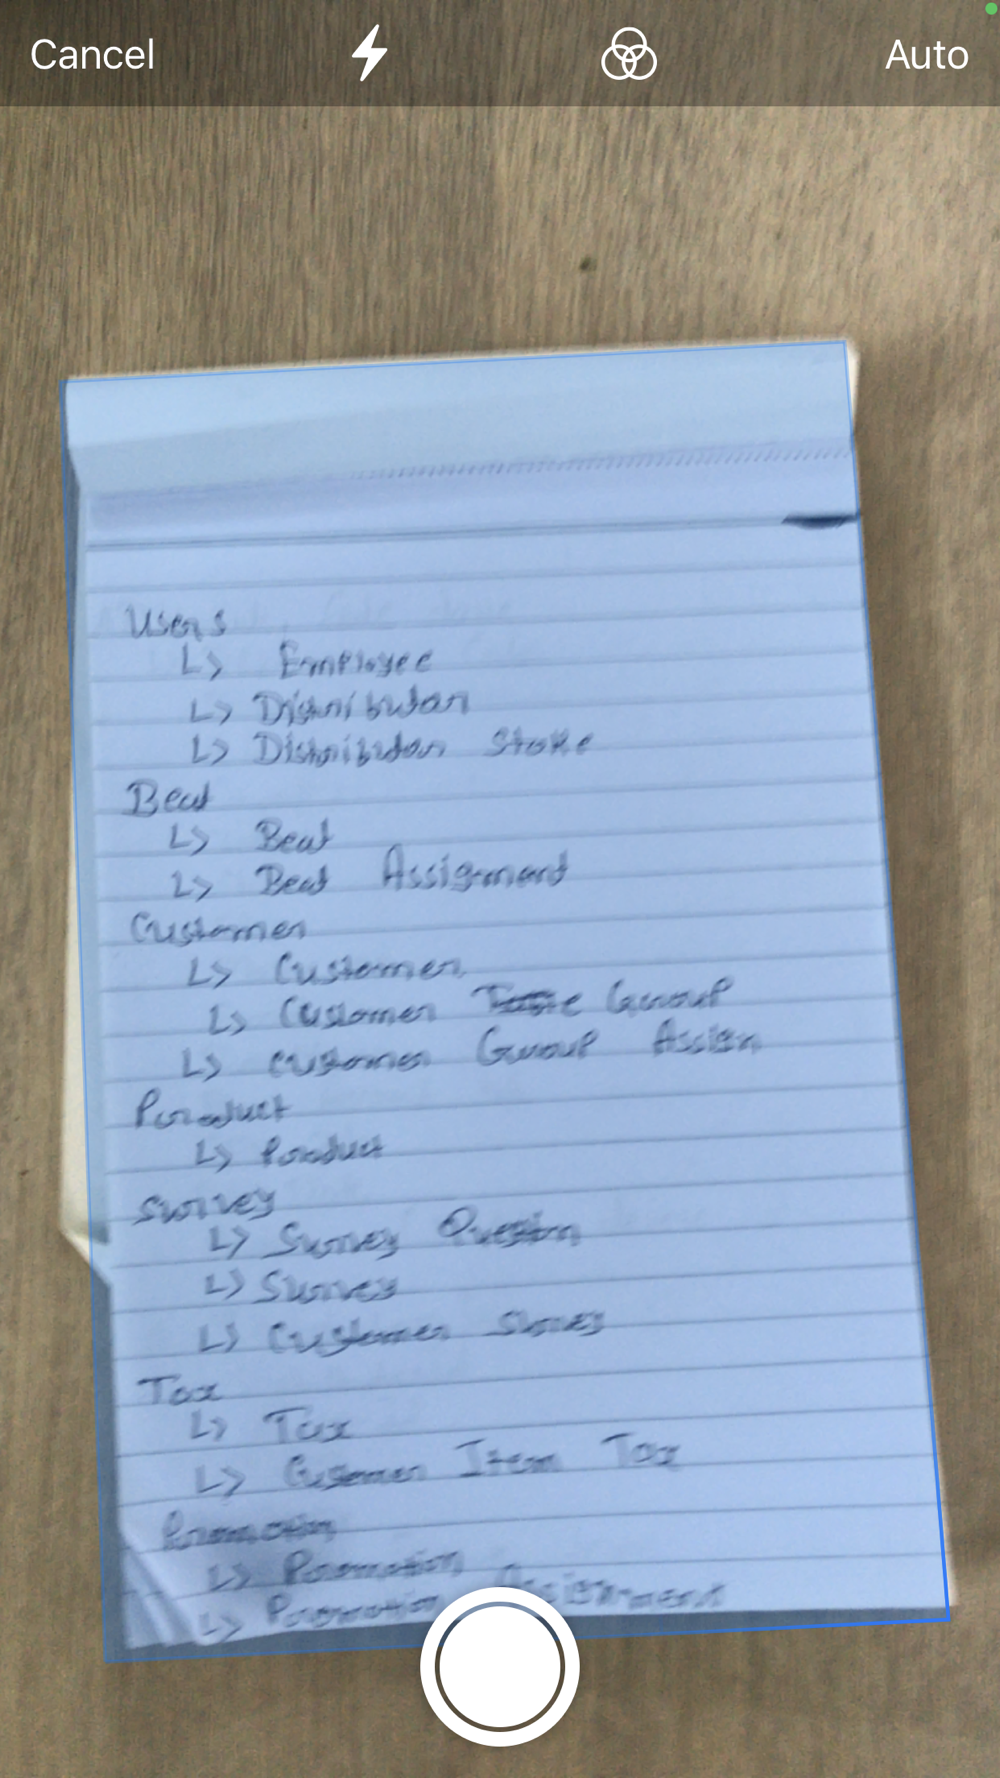 Cancel
Auto
Users
↳ Employee
↳ Distributor
↳ Distributor Stoke
Beat
↳ Beat
↳ Beat Assignment
Customer
↳ Customer
↳ Customer Group
↳ Customer Group Assign
Product
↳ Product
Survey
↳ Survey Question
↳ Survey
↳ Customer Survey
Tax
↳ Tax
↳ Customer Item Tax
Promotion
↳ Promotion
↳ Promotion Assignment